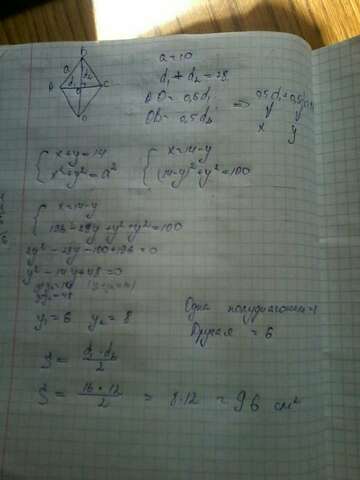 B
a
B
C
D
a = 10
d₁ + d₂ = 28
AO = 0,5d₁
OB = 0,5d₂
⇒ 0,5d₁ + 0,5d₂
x y
{ x+y=14
x²+y² = a²
{ x=14-y
(14-y)²+y²=100
{ x=14-y
196-28y+y²+y²=100
2y²-28y-100+196=0
y²-14y+48=0
y₁+y₂=14
y₁y₂=48
y₁ = 6 y₂ = 8
Одна полудиагональ
Другая = 6
S = d₁·d₂ / 2
S = 16·12 / 2 = 8·12 = 96 см²